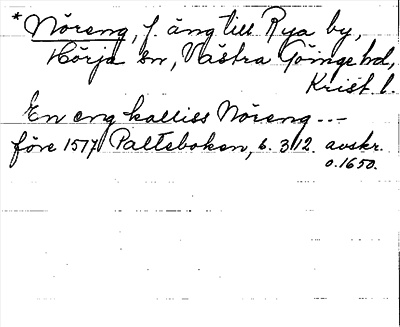 *Nöreng, f. äng till Rya by,
Hörja sn, Västra Göinge hd,
Krist. l.
En eng kalliss Nöreng ---
före 1517 Palteboken, 6. 312. avskr.
o. 1650.